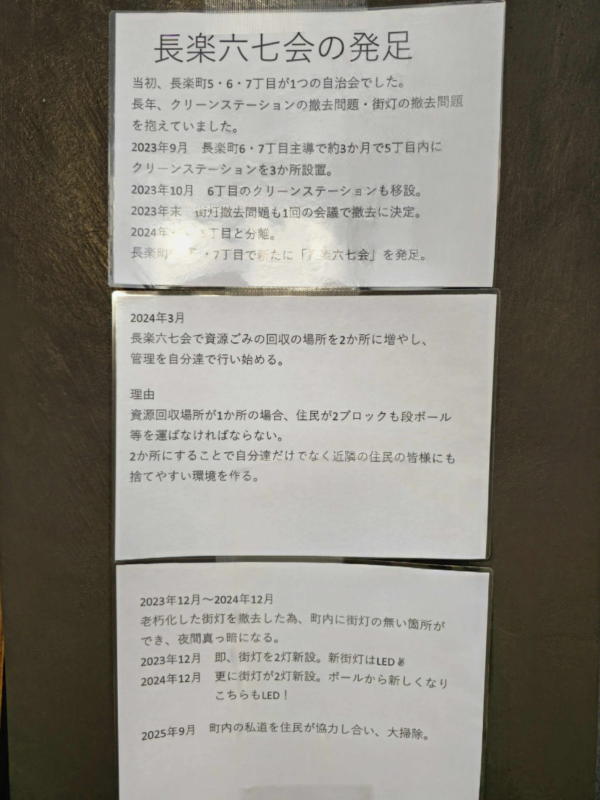 長楽六七会の発足
当初、長楽町5・6・7丁目が1つの自治会でした。
長年、クリーンステーションの撤去問題・街灯の撤去問題
を抱えていました。
2023年9月　長楽町6・7丁目主導で約3か月で5丁目内に
クリーンステーションを3か所設置。
2023年10月　6丁目のクリーンステーションも移設。
2023年末　街灯撤去問題も1回の会議で撤去に決定。
2024年 丁目と分離。
長楽町 ・7丁目で新たに「長楽六七会」を発足。
2024年3月
長楽六七会で資源ごみの回収の場所を2か所に増やし、
管理を自分達で行い始める。
理由
資源回収場所が1か所の場合、住民が2ブロックも段ボール
等を運ばなければならない。
2か所にすることで自分達だけでなく近隣の住民の皆様にも
捨てやすい環境を作る。
2023年12月～2024年12月
老朽化した街灯を撤去した為、町内に街灯の無い箇所が
でき、夜間真っ暗になる。
2023年12月　即、街灯を2灯新設。新街灯はLED✌
2024年12月　更に街灯が2灯新設。ポールから新しくなり
こちらもLED！
2025年9月　町内の私道を住民が協力し合い、大掃除。